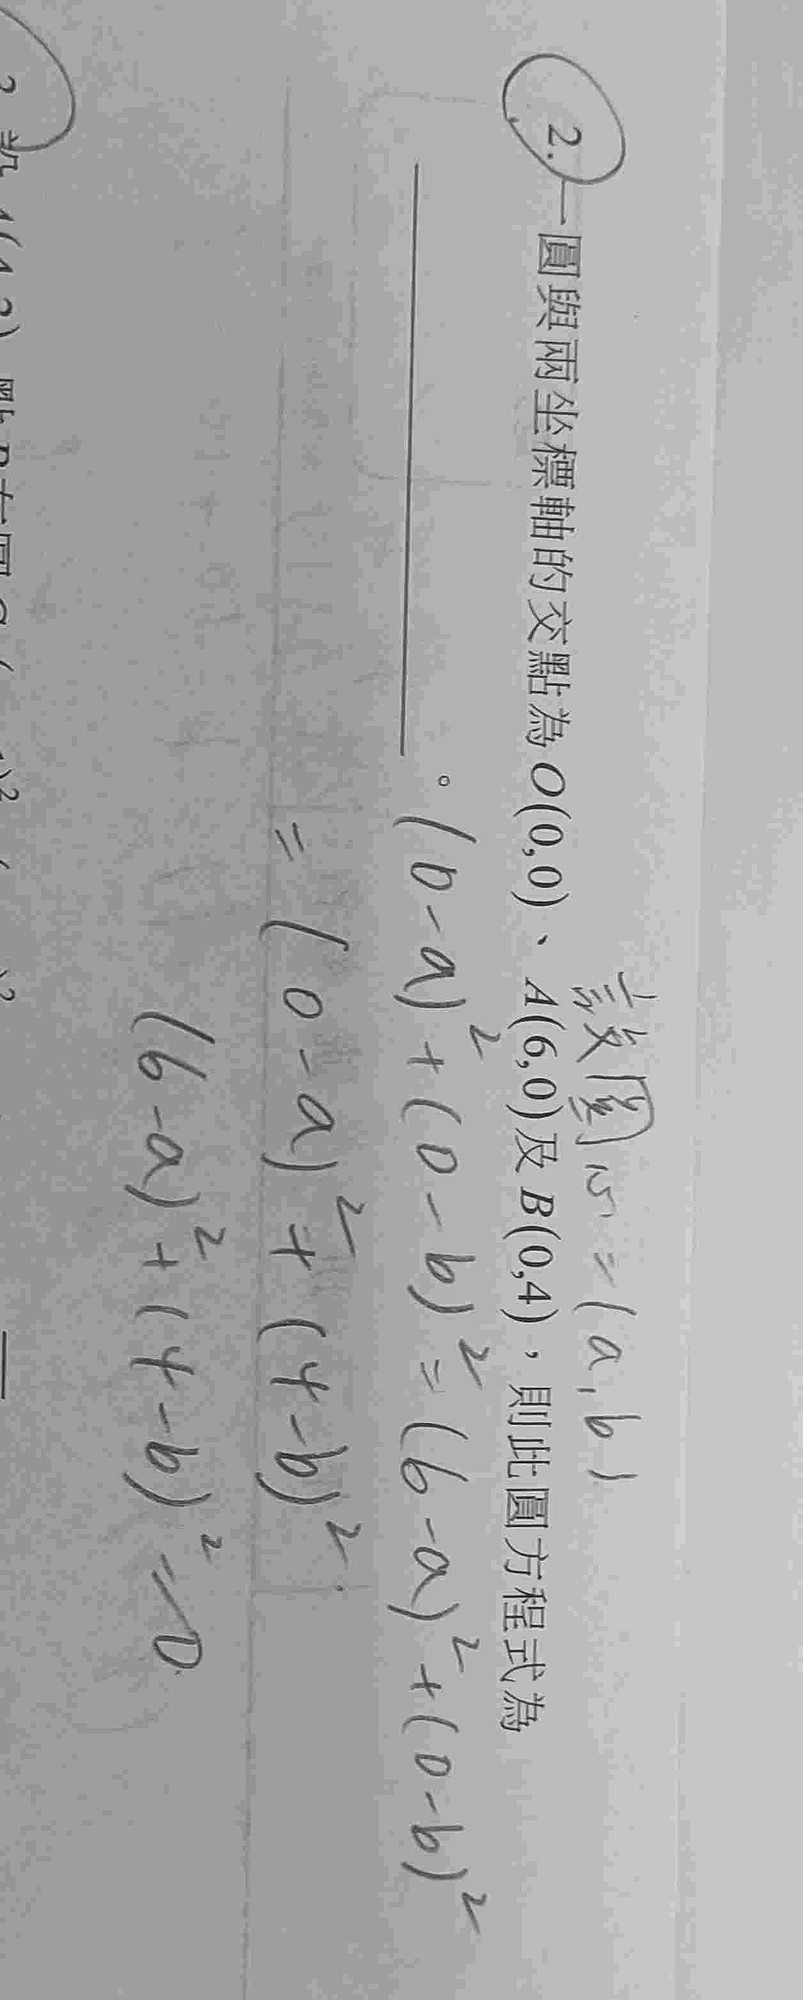 設圓心=(a,b)
2. 一圓與兩坐標軸的交點為O(0,0)、A(6,0)及B(0,4),則此圓方程式為
。(0-a)²+(0-b)²=(6-a)²+(0-b)²
=(0-a)²+(4-b)²
(6-a)²+(4-b)²=0